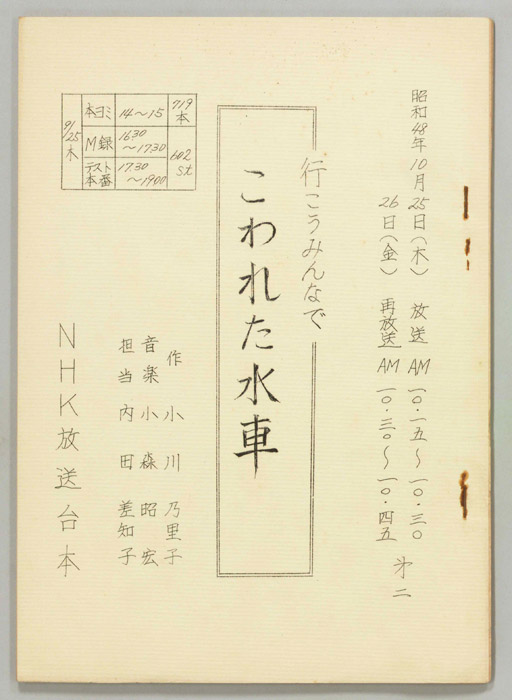 昭和48年10月25日(木) 放送 AM 一〇・一五〜一〇・三〇
26日(金) 再放送 AM 一〇・三〇〜一〇・四五
オ二
行こうみんなで
こわれた水車
作 小川乃里子
音楽 小森昭宏
担当 内田差知子
NHK放送台本
9/25木
本ヨミ 14〜15 719本
M録 1630〜1730 602st
テスト本番 1730〜1900